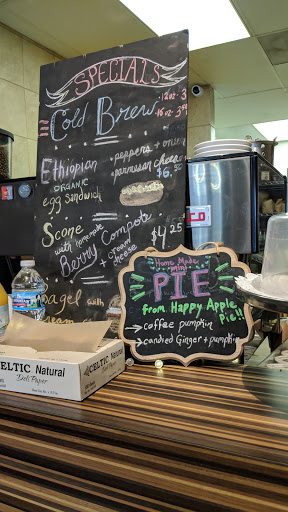 SPECIALS
Cold Brew
12oz 3
16oz 3
Ethiopian
organic
egg sandwich
peppers + onion
parmesan cheese
$6.50
Scone
with homemade
Berry Compote
+ cream
cheese
$4.25
bagel with
cream
Home Made
mini
PIE
from Happy Apple
Pie!!
→coffee pumpkin
→candied Ginger + pumpkin
CELTIC Natural
Deli Paper
CELTIC Natural